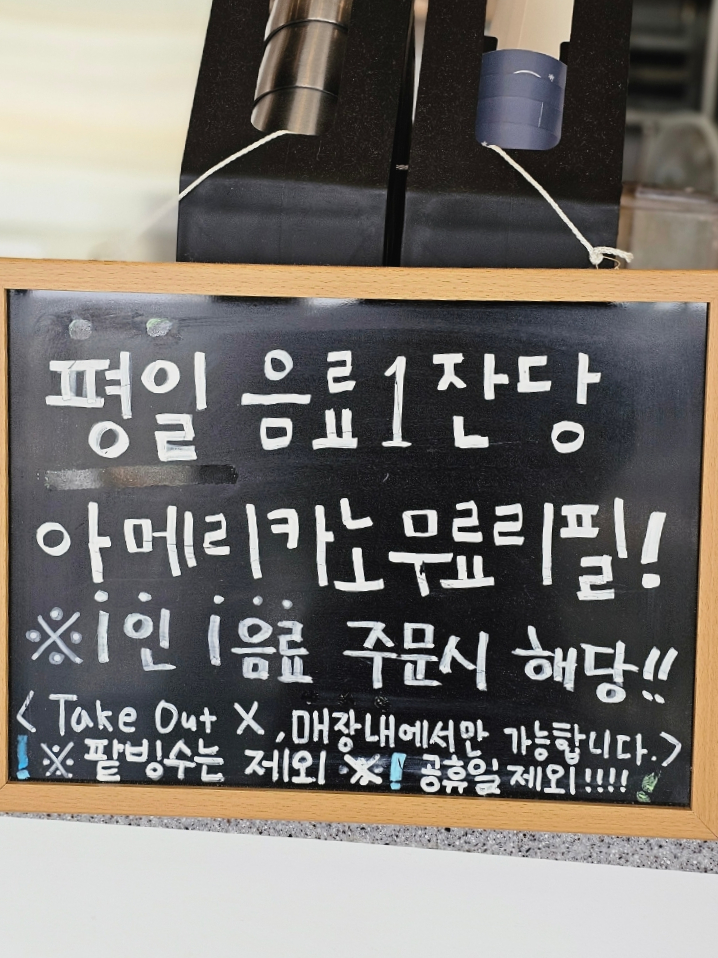 평일 음료 1 잔당
아메리카노 무료리필!
※ 1인 1음료 주문시 해당!!
< Take Out X, 매장내에서만 가능합니다.>
! ※ 팥빙수는 제외 ※ ! 공휴일 제외!!!!